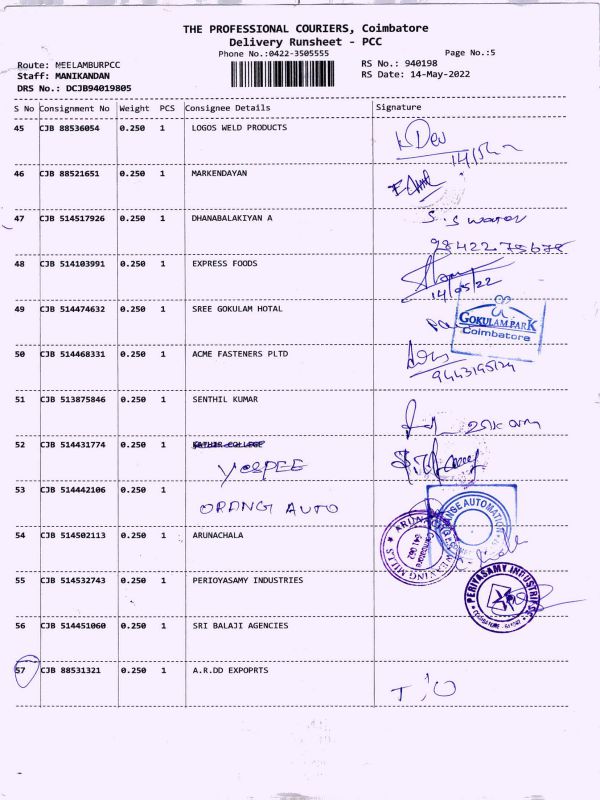 THE PROFESSIONAL COURIERS, Coimbatore
Delivery Runsheet - PCC
Phone No.:0422-3505555
Page No.:5
Route: NEELAMBURPCC
RS No.: 940198
Staff: MANIKANDAN
RS Date: 14-May-2022
DRS No.: DCJB94019805
S No Consignment No Weight PCS Consignee Details Signature
45 CJB 88536054 0.250 1 LOGOS WELD PRODUCTS
46 CJB 88521651 0.250 1 MARKENDAYAN
47 CJB 514517926 0.250 1 DHANABALAKIYAN A
48 CJB 514103991 0.250 1 EXPRESS FOODS
14/05/22
49 CJB 514474632 0.250 1 SREE GOKULAM HOTAL
GOKULAM PARK
Coimbatore
50 CJB 514468331 0.250 1 ACME FASTENERS PLTD
51 CJB 513875846 0.250 1 SENTHIL KUMAR
52 CJB 514431774 0.250 1
YOSPEE
53 CJB 514442106 0.250 1
ORANGI AUTO
54 CJB 514502113 0.250 1 ARUNACHALA
55 CJB 514532743 0.250 1 PERIOYASAMY INDUSTRIES
PERIYASAMY INDUSTRIES
56 CJB 514451060 0.250 1 SRI BALAJI AGENCIES
57 CJB 88531321 0.250 1 A.R.DD EXPOPRTS